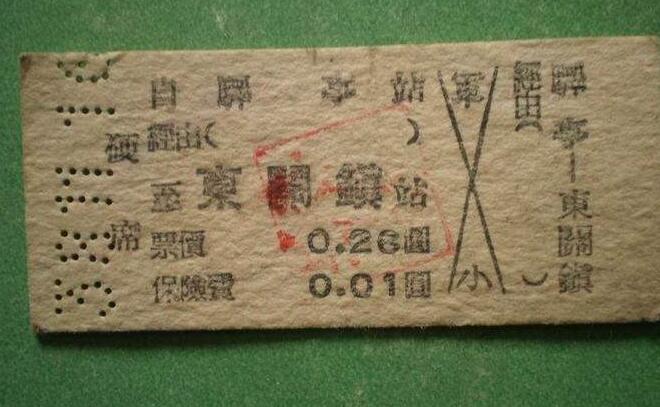 硬席
自 驛 亭 站
經由( )
至 東關鎮站
票價 0.26圓
保險費 0.01圓
軍
小
經由( )
驛亭—東關鎮